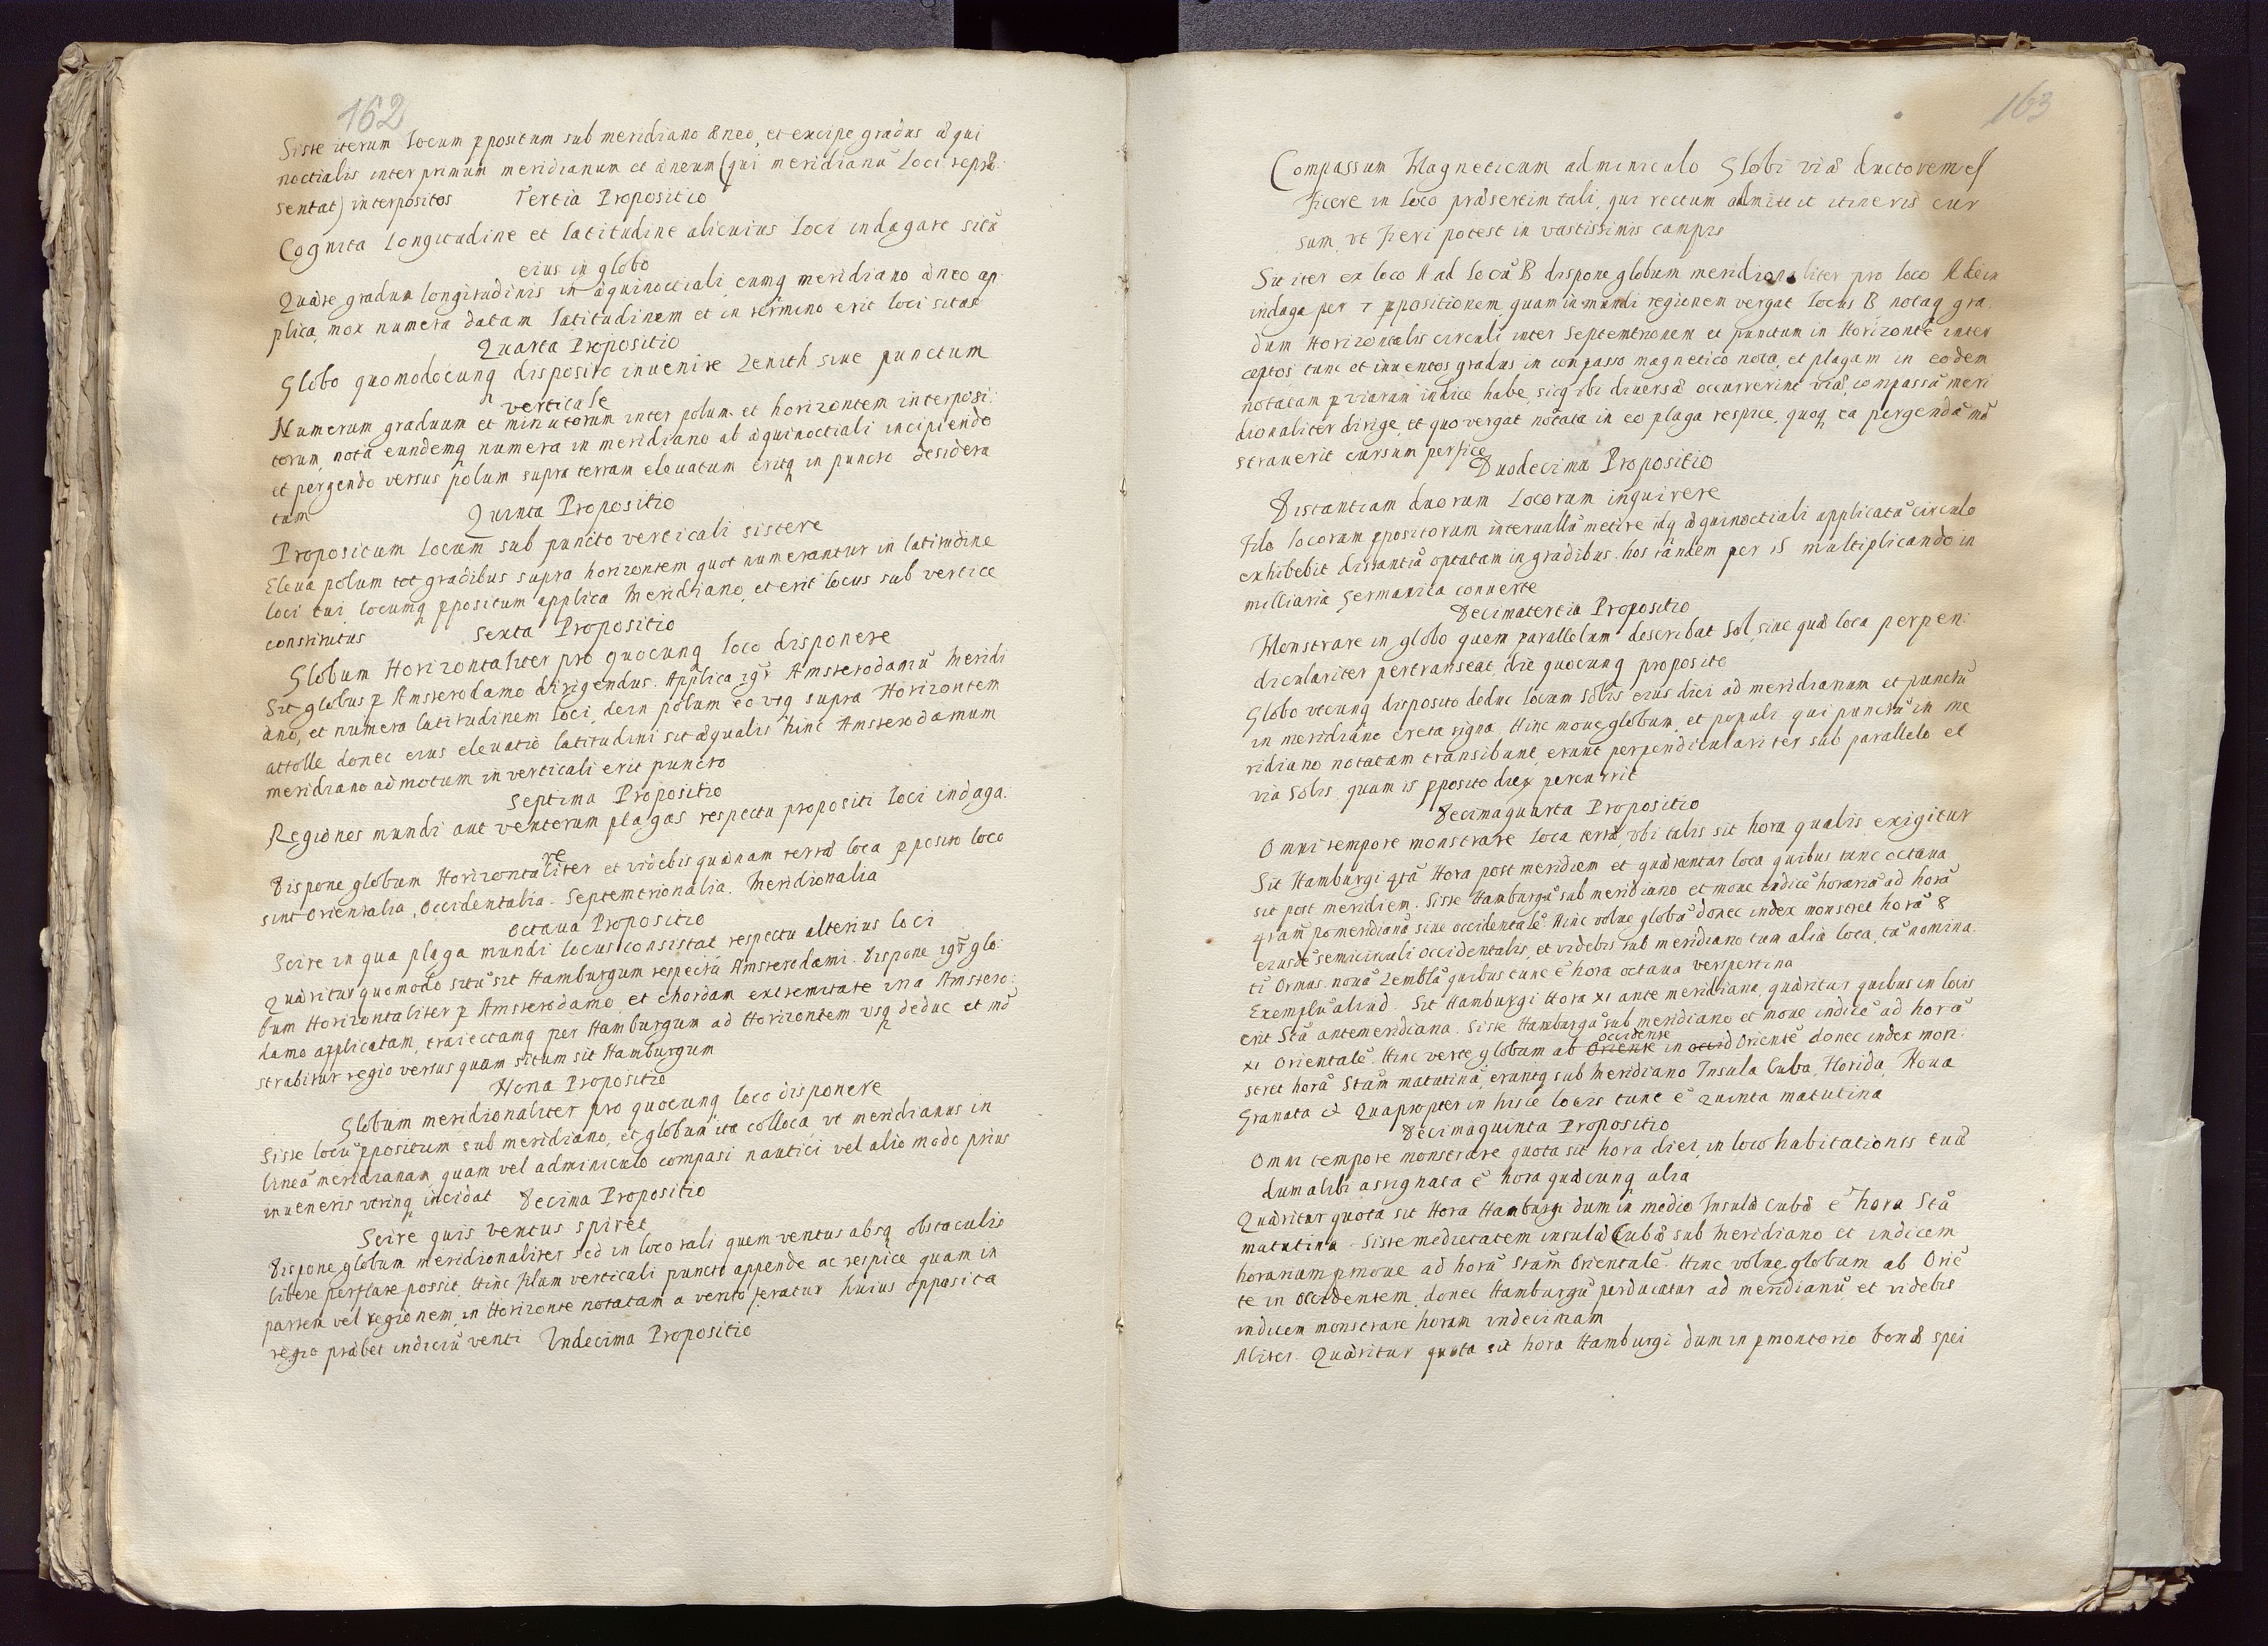 162
Siste iterum locum ppositum sub meridiano æneo, et excipe gradus æqui
noctialis inter primum meridianum et æneum (qui meridianũ loci repræ:
sentat) interpositos Tertia Propositio
Cognita longitudine et latitudine alicuius loci indagare sitũ
eius in globo
Quære gradum longitudinis in æquinoctiali eumq meridiano æneo ap
plica, mox numera datam latitudinem et in termino erit loci situs
Quarta Propositio
Globo quomodocunq disposito invenire Zenith sive punctum
verticale
Numerum graduum et minutorum inter polum et horizontem interposi:
torum nota eundemq numera in meridiano ab æquinoctiali incipiendo
et pergendo versus polum supra terram elevatum eritq in puncto desidera
tum
Quinta Propositio
Propositum locum sub puncto verticali sistere
Eleva polum tot gradibus supra horizontem quot numerantur in latitudine
loci tui, locumq ppositum applica Meridiano, et erit locus sub vertice
constitutus Sexta Propositio
Globum Horizontaliter pro quocunq loco disponere
Sit globus p Amsterodamo dirigendus. Applica igr Amsterodamũ Meridi
ano, et numera latitudinem loci, dein polum eo usq supra Horizontem
attolle donec eius elevatio latitudini sit æqualis hinc Amsterodamum
meridiano admotum in verticali erit puncto
Septima Propositio
Regiones mundi aut ventorum plagas respectu propositi loci indaga:
re
Dispone globum Horizontaliter et videbis quænam terræ loca pposito loco
sint orientalia, occidentalia. Septemtrionalia. Meridionalia
Octava Propositio
Scire in qua plaga mundi locus consistat respectu alterius loci
Quæritur quomodo sitũ sit Hamburgum respectũ Amsterodami. Dispone igr glo:
bum Horizontaliter p Amsterodamo et chordam extremitate una Amstero:
damo applicatam, traiectamq per Hamburgum ad Horizontem usq deduc et mõ
strabitur regio versus quam situm sit Hamburgum
Nona Propositio
Globum meridionaliter pro quocunq loco disponere
Siste locũ ppositum sub meridiano, et globum ita colloca vt meridianus in
lineã meridianam quam vel adminiculo compasi nautici vel alio modo prius
inveneris utrinq incidat Decima Propositio
Scire quis ventus spiret
Dispone globum meridionaliter sed in loco tali quem ventus absq obstaculis
libere perflare possit, Hinc filum verticali puncto appende ac respice quam in
partem vel regionem in Horizonte notatam a vento feratur huius opposita
regio præbet indiciũ venti Undecima Propositio
163
Compassum Magneticum adminiculo Globi viæ ductorem ef
ficere in loco præsertim tali, qui rectum admittit itineris cur
sum, vt fieri potest in vastissimis campis
Sit iter ex loco A ad locũ B dispone globum meridionaliter pro loco A dein
indaga per 7 ppositionem quam in mundi regionem vergat locus B notaq gra
dum Horizontalis circuli inter septemtrionem et punctum in Horizonte inter
ceptos tunc et inventos gradus in compasso magnetico nota, et plagam in eodem
notatam p viarum indice habe, sicq ibi diversæ occurrerint viæ, compassũ meri
dionaliter dirige, et quo vergat notata in eo plaga respice, quoq ea pergendũ mõ
straverit cursum perfice
Duodecima Propositio
Distantiam duorum locorum inquirere
Filo locorum ppositorum intervallũ metire idq æquinoctiali applicatũ circulo
exhibebit distantiã optatam in gradibus. hos tandem per 15 multiplicando in
milliaria Germanica converte
Decimatertia Propositio
Monstrare in globo quem parallelum describat Sol, sive quæ loca perpen:
diculariter pertranseat, die quocunq proposito
Globo utcunq disposito deduc locum Solis eius diei ad meridianum et punctũ
in meridiano creta signa. Hinc move globum, et populi qui punctũ in me
ridiano notatam transibunt, erunt perpendiculariter sub parallelo et
via Solis, quam is pposito die percurrit
Decimaquarta Propositio
Omni tempore monstrare loca terræ, vbi talis sit hora qualis exigitur
Sit Hamburgi 4tã Hora post meridiem et quærantur loca quibus tunc octava
sit post meridiem. Siste Hamburgũ sub meridiano et move indicẽ horariũ ad horã
4tam pomeridianã sive occidentalẽ Hinc volve globũ donec index monstret horã 8
eiusdẽ semicirculi occidentalis, et videbis sub meridiano tum alia loca, tũ nomina:
ti Ormus. nova Zembla quibus tunc ẽ hora octava verspertina
Exemplũ aliud. Sit Hamburgi Hora XI ante meridiana, quæritur quibus in locis
erit 5tã antemeridiana. Siste Hamburgũ sub meridiano et move indicẽ ad horã
occidente
XI orientalẽ. Hinc verte globum ab Oriente in occid Orientẽ donec index mon:
stret horã 5tam matutinã, eruntq sub Meridiano Insula Cuba, Florida, Nova
Granata &. Quapropter in hisce locis tunc ẽ Quinta matutina
Decimaquinta Propositio
Omni tempore monstrare quota sit hora diei, in loco habitationis tuæ
dum alibi assignata ẽ hora quæcunq alia
Quæritur quota sit Hora Hamburgi dum in medio Insulæ Cubæ ẽ hora 5tã
matutina. Siste medietatem insulæ Cubæ sub Meridiano et indicem
horarium pmove ad horã 5tam Orientalẽ. Hinc volve globum ab Oriẽ
te in Occidentem donec Hamburgũ perducatur ad meridianũ et videbis
indicem monstrare horam undecimam
Aliter. Quæritur quota sit hora Hamburgi dum in pmontorio bonæ spei